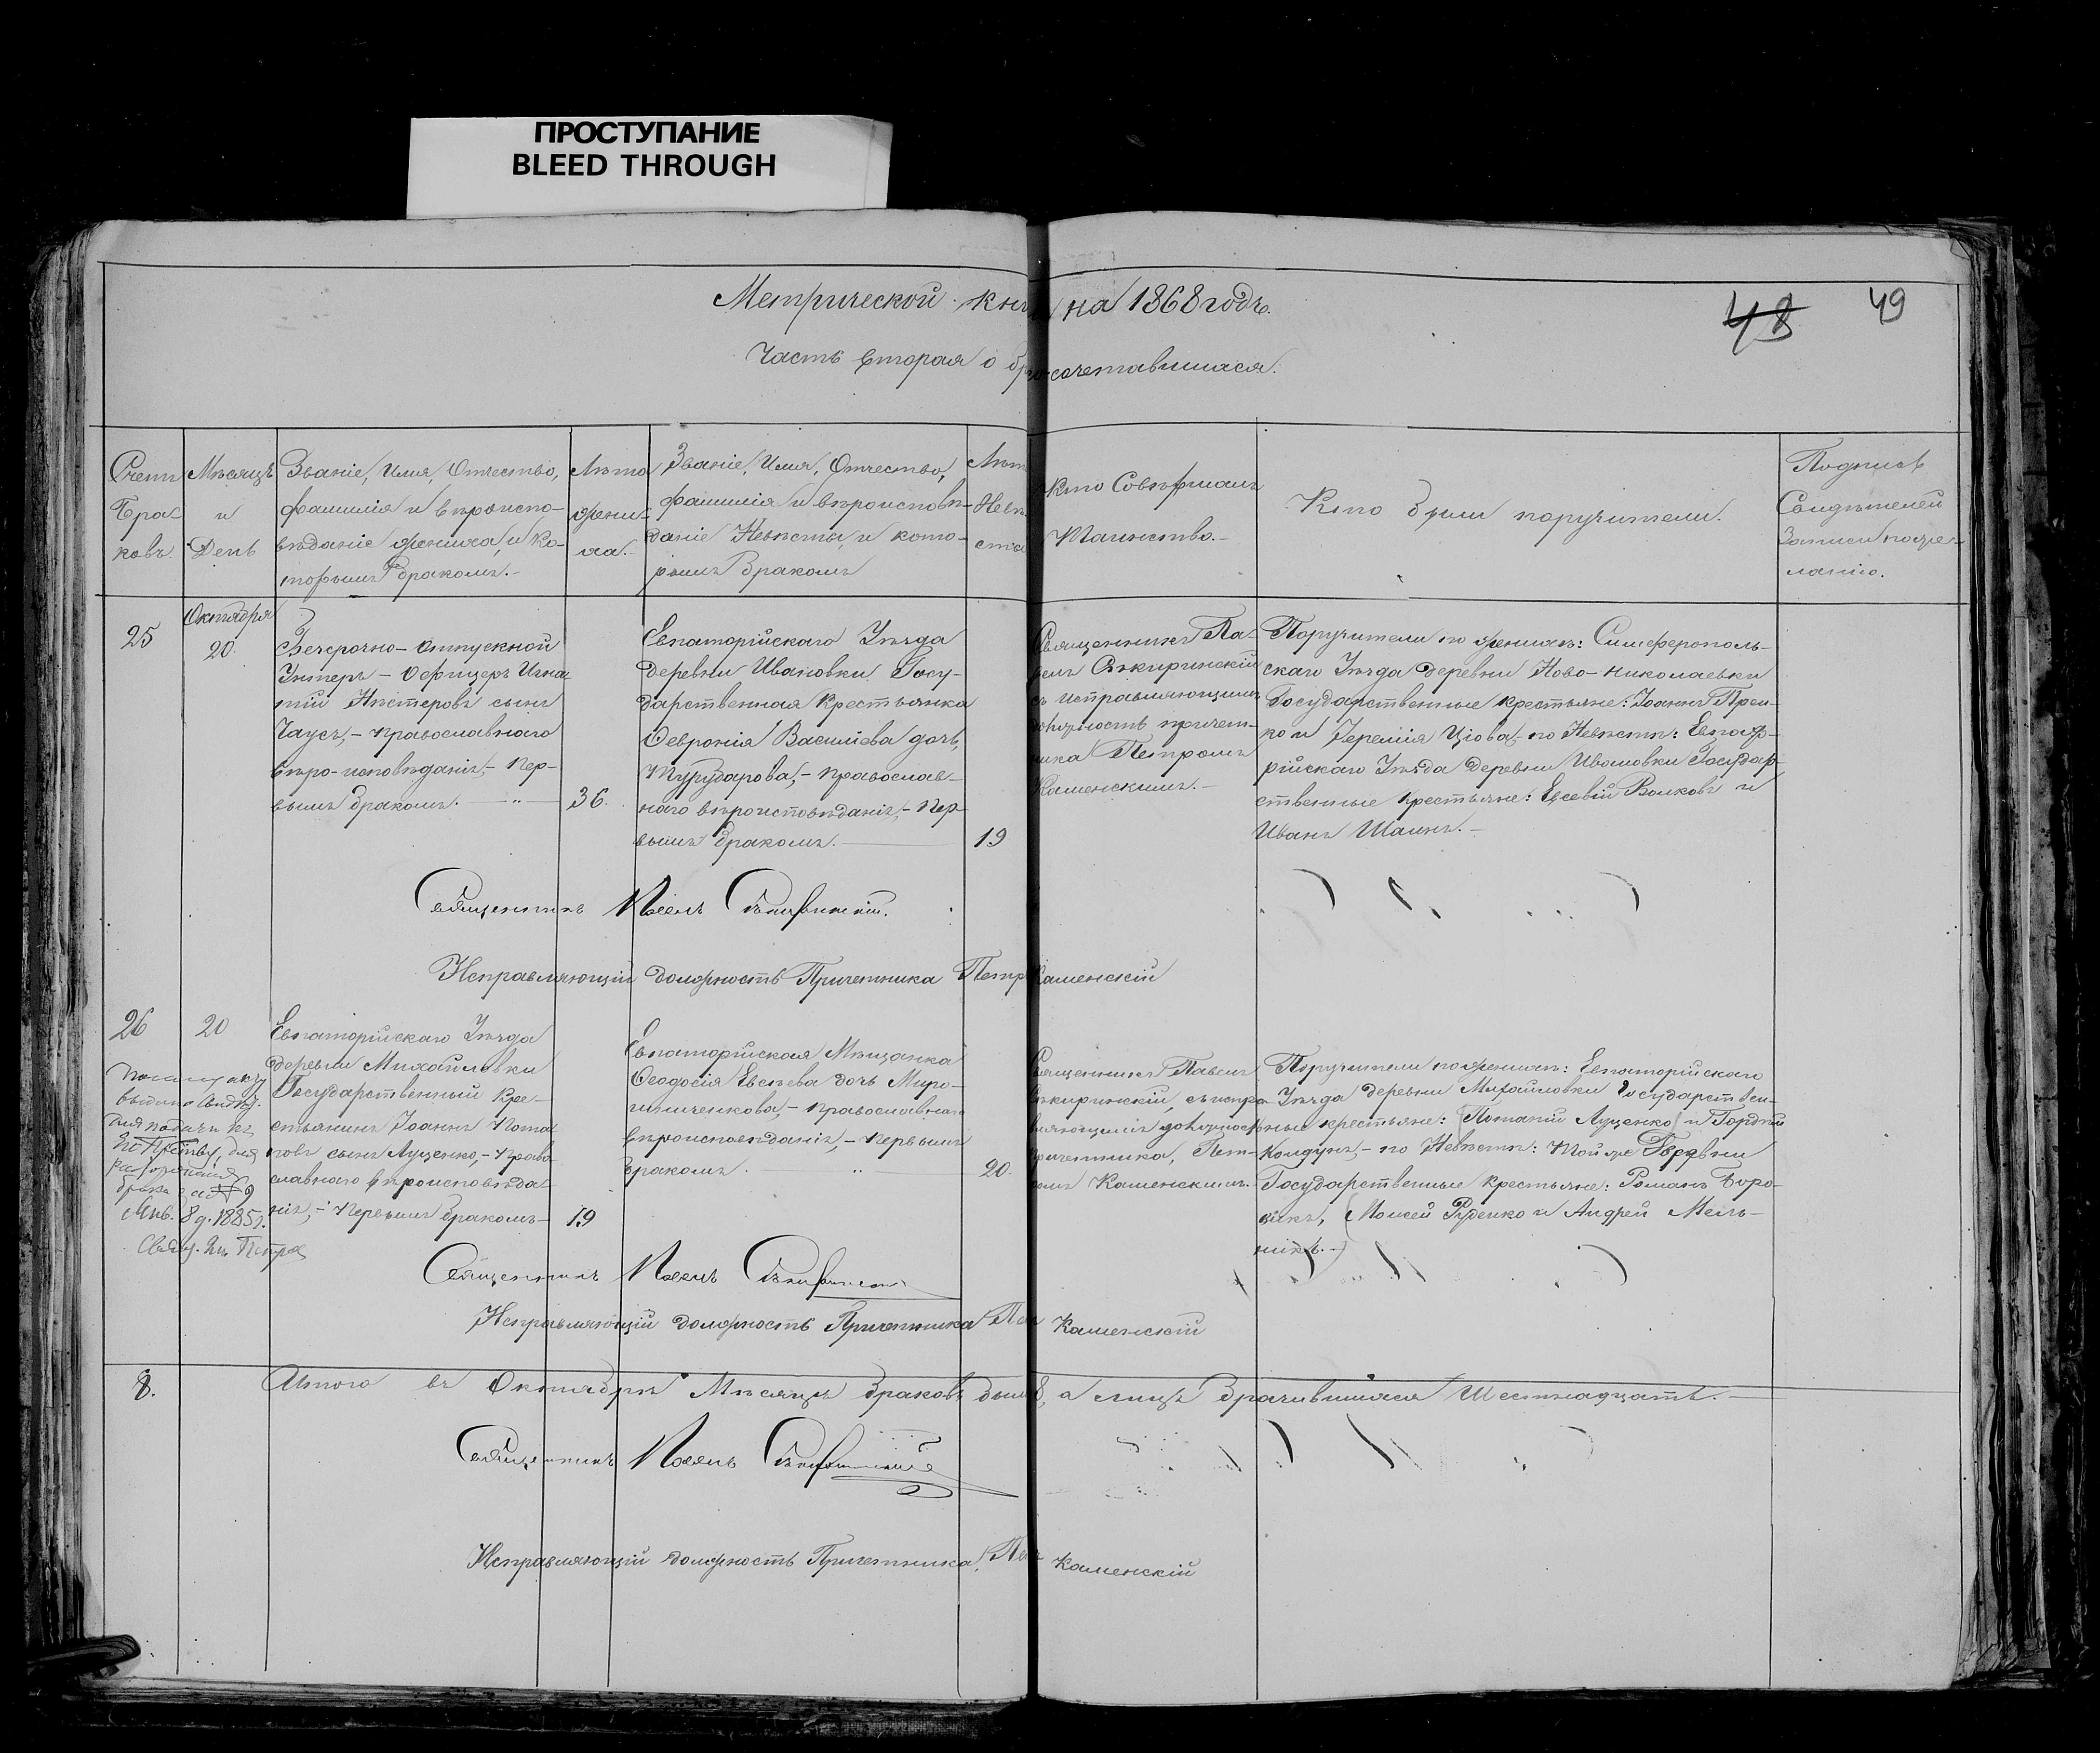 ПРОСТУПАНИЕ
BLEED THROUGH
Метрической кни на 1868 годъ.
48 49
Часть вторая о бракосочетавшихся.
Счетъ
Бра-
ковъ.
Мѣсяцъ
и
День
Званіе, Имя, Отчество,
фамилія и вѣроиспо-
вѣданіе жениха, и ко-
торымъ бракомъ.-
Лѣта
жени-
ха.-
Званіе, Имя, Отчество,
фамилія и вѣроисповѣ-
даніе Невѣсты, и кото-
рымъ бракомъ
Лѣта
Невѣ-
сты
Кто Совершалъ
Таинство.-
Кто были поручители.
Подпись
Свидѣтелей
Записи по же-
ланію.
25
Октября
20.
Безсрочно-отпускной
Унтеръ-Офицеръ Игна-
тій Нестеровъ сынъ
Чаусъ,- православнаго
вѣро-исповѣданія,- пер-
вымъ бракомъ. - „ -
36.
Евпаторійскаго Уѣзда
деревни Ивановки Госу-
дарственная крестьянка
Февронія Васильева дочь,
- православ-
наго вѣроисповѣданія,- пер-
вымъ бракомъ.-
19
Священникъ Па-
велъ
съ исправляющимъ
должность причет-
ника Петромъ
Каменскимъ.-
Поручители по женихѣ: Симферополь-
скаго Уѣзда деревни Ново-Николаевки
Государственные крестьяне: Іоаннъ
и Іеремія - по Невѣстѣ: Евпато-
рійскаго Уѣзда деревни Ивановки Государ-
ственные крестьяне: Евсевій Волковъ и
Иванъ .-
Священникъ Павелъ
Исправляющій должность Причетника Петръ Каменскій
26
20
Евпаторійскаго Уѣзда
деревни Михайловки
Государственный кре-
стьянинъ Іоаннъ Пота-
повъ сынъ Луценко,- право-
славнаго вѣроисповѣда-
нія,- первымъ бракомъ-
19
выдано
для подачи
для
брака
8 д. 1885 г.
Евпаторійская Мѣщанка
Ѳеодосія Евсѣева дочь Миро-
шниченкова,- православнаго
вѣроисповѣданія,- первымъ
бракомъ. - „ -
20.
Священникъ Павелъ
, съ испра-
вляющимъ должность
причетника, Пет-
ромъ Каменскимъ.
Поручители по женихѣ: Евпаторійскаго
Уѣзда деревни Михайловки Государствен-
ные крестьяне: Потапій Луценко и Гордѣй
Колдунъ,- по Невѣстѣ: той же деревни
Государственные крестьяне: Романъ Боро-
викъ, Моисей Руденко и Андрей Мель-
никъ.-
Священникъ Павелъ
Исправляющій должность Причетника Петръ Каменскій
8.
Итого въ Октябрѣ Мѣсяцѣ браковъ было 8, а лицъ брачившихся шестнадцать.-
Священникъ Павелъ
Исправляющій должность Причетника Петръ Каменскій